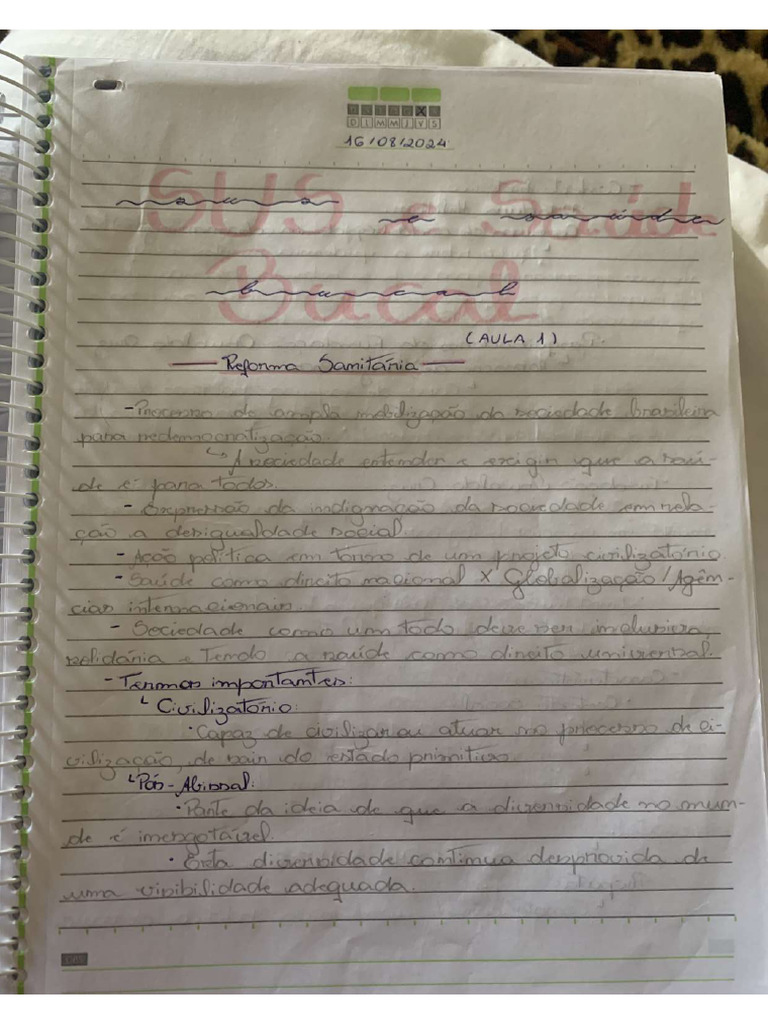 D L M M J V S
16/08/2024
SUS e Saúde
sus e saúde
Bucal
bucal
(AULA 1)
Reforma Sanitária
- Processo de ampla mobilização da sociedade brasileira
para redemocratização.
↳ A sociedade entender e exigir que a saú-
de é para todos.
- Expressão da indignação da sociedade em rela-
ção a desigualdade social.
- Ação política em torno de um projeto civilizatório.
- Saúde como direito nacional X Globalização/Agên-
cias internacionais.
- Sociedade como um todo deve ser inclusiva,
solidária e tendo a saúde como direito universal.
- Termos importantes:
↳ Civilizatório:
• Capaz de civilizar ou atuar no processo de ci-
vilização, de sair do estado primitivo.
↳ Pós-Abissal:
• Parte da ideia de que a diversidade no mun-
do é inesgotável.
• Esta diversidade continua desprovida de
uma visibilidade adequada.
OBS